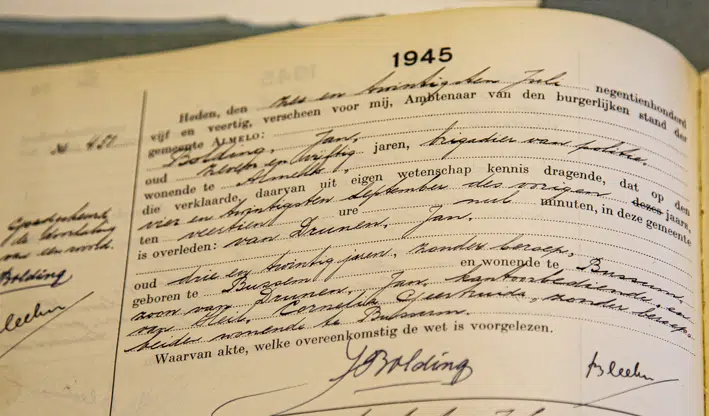 1945
Heden, den zes en twintigsten Juli negentienhonderd
vijf en veertig, verscheen voor mij, Ambtenaar van den burgerlijken stand der
gemeente ALMELO:
Bolding, Jan,
oud zeven en vijftig jaren, brigadier van politie,
wonende te Almelo,
die verklaarde, daarvan uit eigen wetenschap kennis dragende, dat op den
vier en twintigsten September des vorigen dezes jaars,
ten veertien ure nul minuten, in deze gemeente
is overleden: van Drunen, Jan,
oud drie en twintig jaren, zonder beroep,
geboren te Bussum en wonende te Bussum,
zoon van van Drunen, Jan, kantoorbediende, en
van Cornelia zonder beroep
beiden wonende te Bussum.
Waarvan akte, welke overeenkomstig de wet is voorgelezen.
JBolding
№ 451
Goedgekeurd
de doorhaling
van een woord.
Bolding